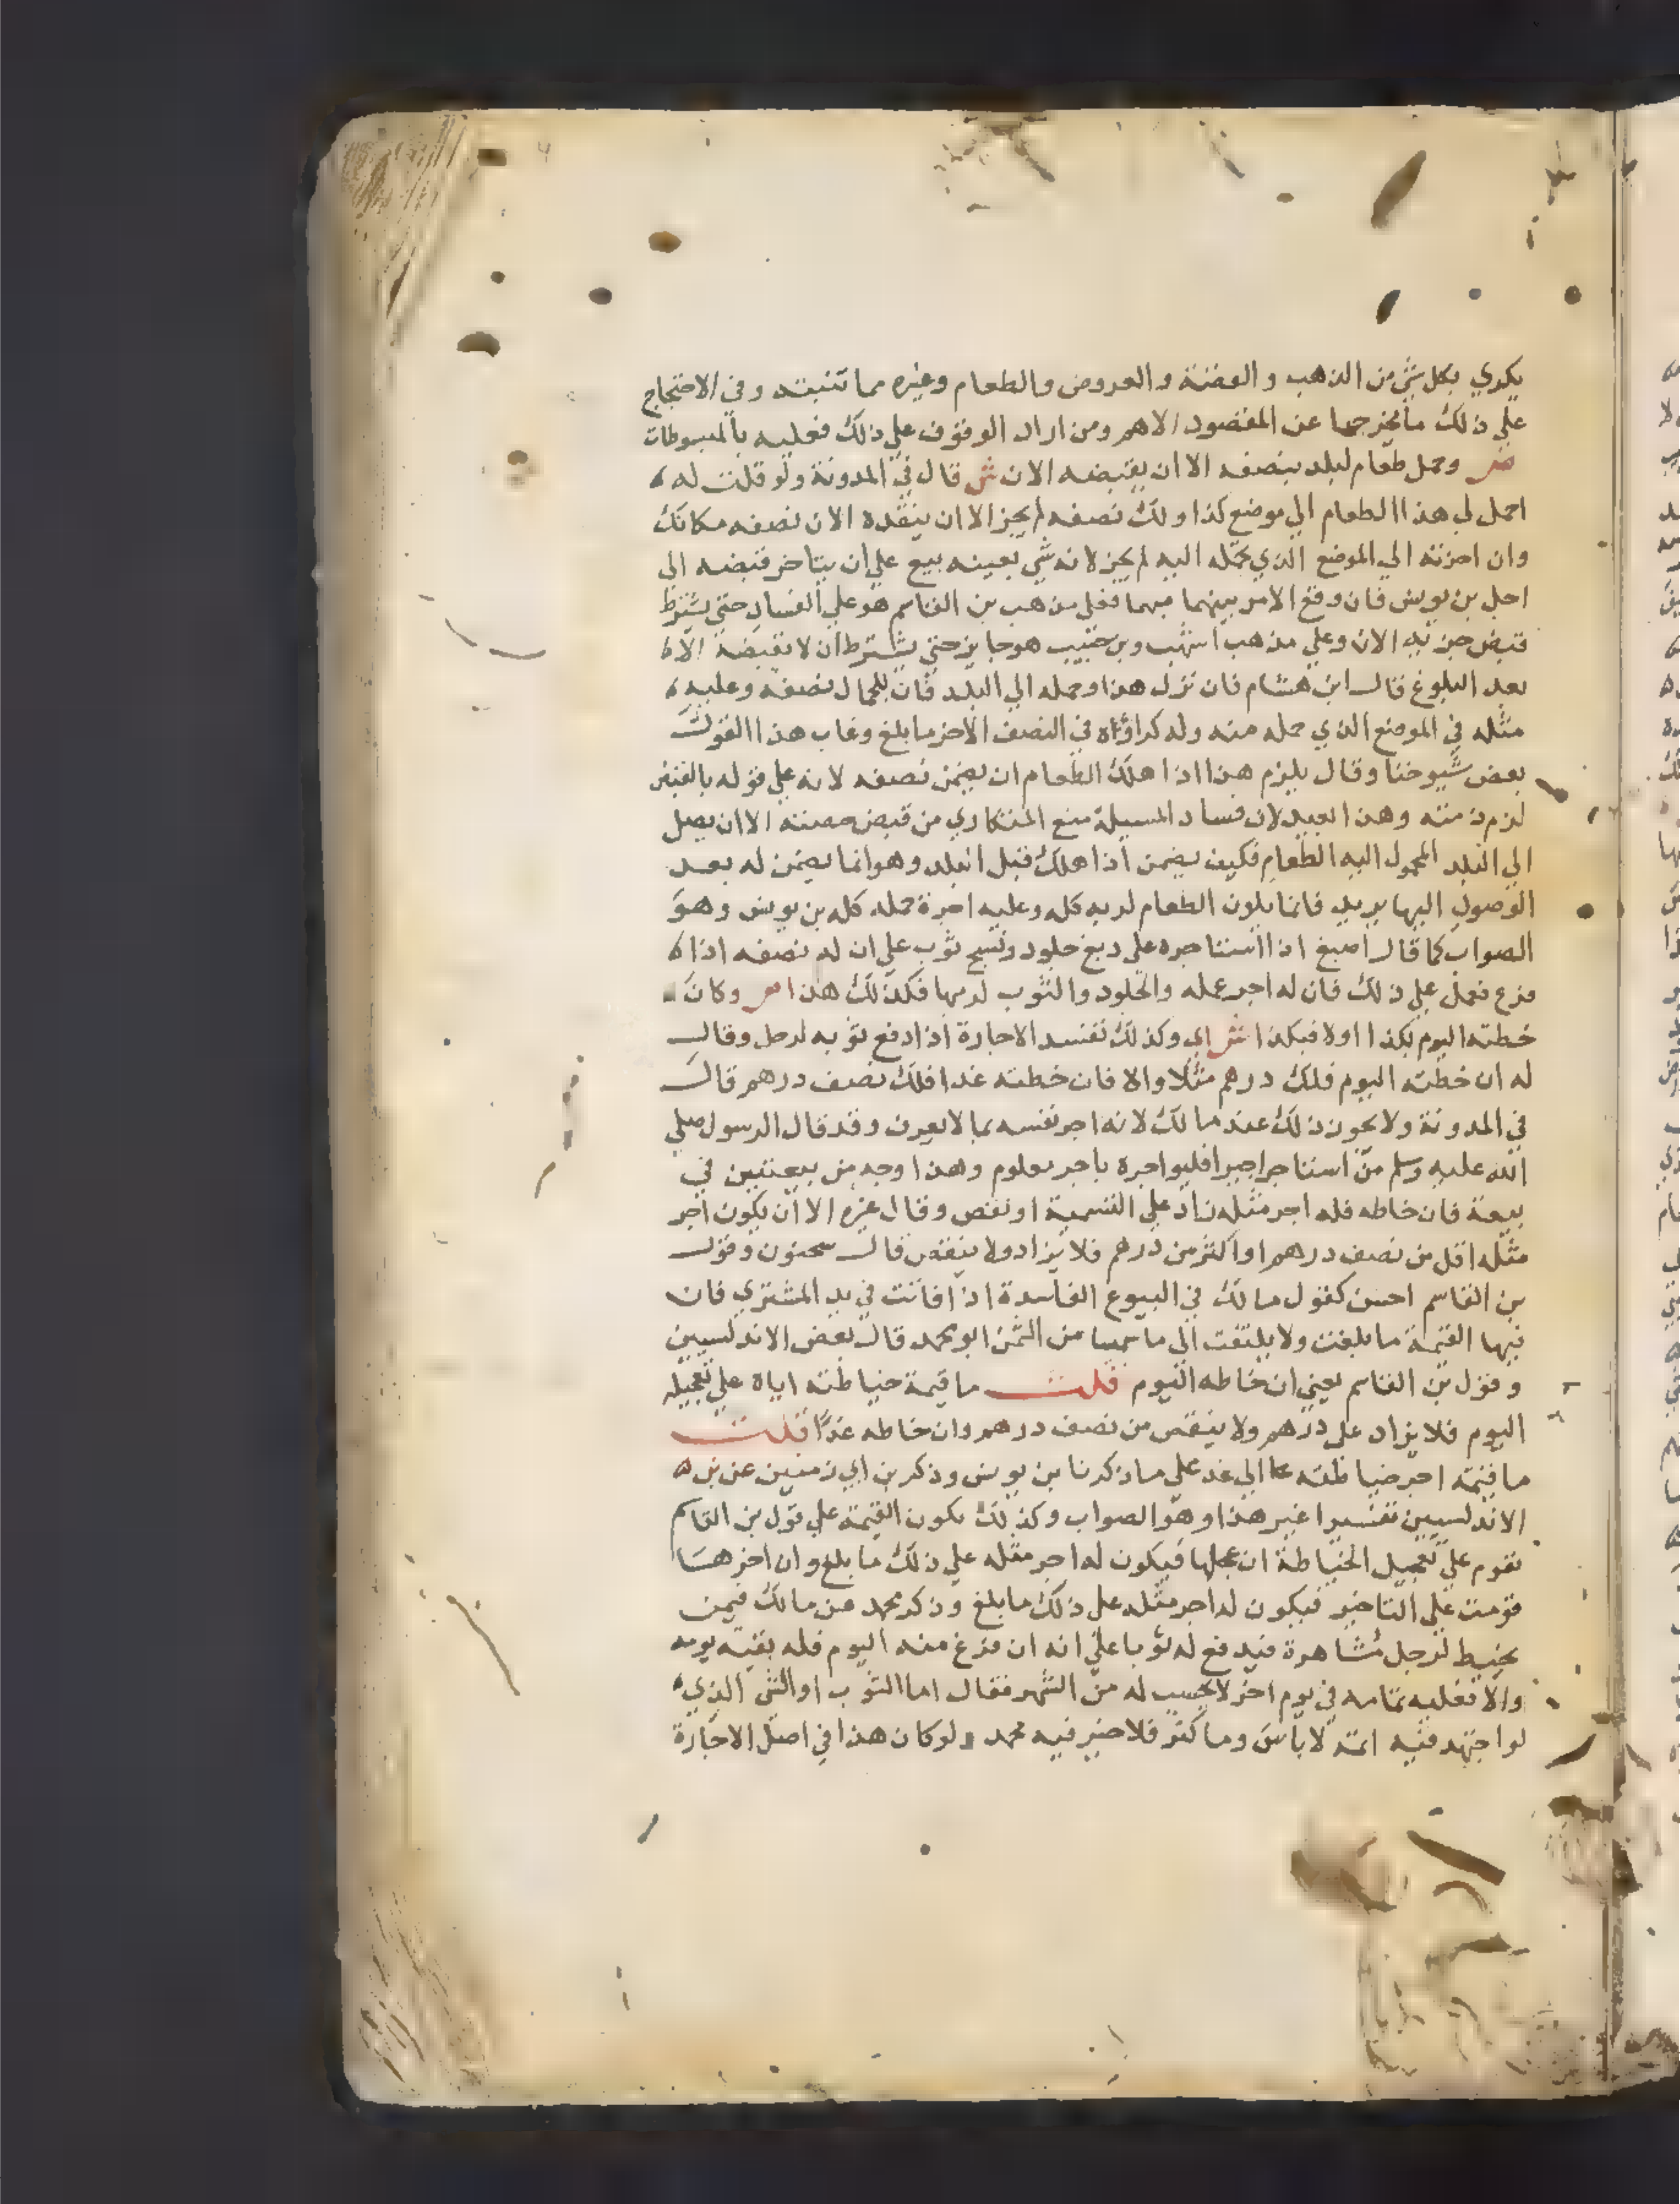 يكري بكل شي من الذهب والفضة والعروض والطعام وغيره مما تنبته وفي الاحتجاج
على ذلك ما يخرجها عن المقصود الاهم ومن اراد الوقوف على ذلك فعليه بالمبسوطات
ص وحمل طعام لبلد بنصفه الا ان يقبضه الان ش قال في المدونة ولو قلت له
احمل لي هذا الطعام الي موضع كذا ولك نصفه لم يجز الا ان ينقده الان نصفه مكانك
وان اخرته الي الموضع الذي يحمله اليه لم يجز لانه شي بعينه بيع على ان يتاخر قبضه الى
اجل بن يونس فان وقع الامر بينهما مبهما فعلى مذهب بن القاسم هو على الفساد حتى يشترط
قبض جزئه الان وعلي مذهب اشهب وبن حبيب هو جايز حتي يشترط ان لا يقبضه الا
بعد البلوغ قال ابن هشام فان نزل هذا وحمله الي البلد فان للحمال نصفه وعليه
مثله في الموضع الذي حمله منه وله كراؤه في النصف الاخر ما بلغ وعاب هذا القول
بعض شيوخنا وقال يلزم هذا اذا هلك الطعام ان يضمن نصفه لانه علي قوله بالقبض
لزم ذمته وهذا بعيد لان فساد المسيلة منع المتكاري من قبض حصته الا ان يصل
الي البلد المحمول اليه الطعام فكيف يضمن اذا هلك قبل البلد وهو انما يضمن له بعد
الوصول اليها يريد فانما يكون الطعام لربه كله وعليه اجرة حمله كله بن يونس وهو
الصواب كما قال اصبغ اذا استاجره على دبغ جلود ونسج ثوب علي ان له نصفه اذا
فرغ فعمل علي ذلك فان له اجر عمله والجلود والثوب لربها فكذلك هذا ص وكان
خطته اليوم بكذا اولا فبكذا ش اي وكذلك تفسد الاجارة اذا دفع ثوبه لرجل وقال
له ان خطته اليوم فلك درهم مثلا والا فان خطته غدا فلك نصف درهم قال
في المدونة ولا يجوز ذلك عند مالك لانه اجر نفسه بما لا يعرف وقد قال الرسول صلي
الله عليه وسلم من استاجر اجيرا فليواجره باجر معلوم وهذا وجه من بيعتين في
بيعة فان خاطه فله اجر مثله زاد علي التسمية او نقص وقال غيره الا ان يكون اجر
مثله اقل من نصف درهم او اكثر من درهم فلا يزاد ولا ينقص قال سحنون وقول
بن القاسم احسن كقول مالك في البيوع الفاسدة اذا فاتت في يد المشتري فان
فيها القيمة ما بلغت ولا يلتفت الى ما سميا من الثمن ابو محمد قال بعض الاندلسيين
وقول بن القاسم يعني ان خاطه اليوم قلت ما قيمة خياطته اياه علي تعجيله
اليوم فلا يزاد على درهم ولا ينقص من نصف درهم وان خاطه غدًا قلت
ما قيمة اجر خياطته الي غد علي ما ذكرنا بن يونس وذكر بن ابي زمنين عن
الاندلسيين تفسيرا غير هذا وهو الصواب وكذلك يكون القيمة علي قول بن القاسم
تقوم علي تعجيل الخياطة ان عجلها فيكون له اجر مثله علي ذلك ما بلغ وان اخرها
قومت علي التاخير فيكون له اجر مثله على ذلك ما بلغ وذكر محمد عن مالك فيمن
يخيط لرجل مشاهرة فيدفع له ثوبا علي انه ان فرغ منه اليوم فله بقية يومه
والا فعليه تمامه في يوم اخر لا يحسب له من الشهر فقال اما الثوب او الشي الذي
لو اجتهد فيه اتمه لا باس وما كثر فلا خير فيه محمد ولو كان هذا في اصل الاجارة